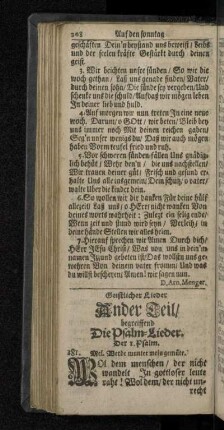 208 Auf den sonntag
geschäfften Dein'n beystand uns beweist/ leibs
und der seelen kräfte Stärckt durch deinen
geist.
3. Wir beichten unsre sünden/ So wie die
woch gethan/ Laß uns genade finden/ Vater/
durch deinen sohn/ Die sünde sey vergeben/ Und
schencke uns die schuld/ Auf daß wir mögen leben
In deiner lieb und huld.
4. Auf morgen wir nun treten In eine neue
woch, Darum/ o GOtt/ wir beten/ Bleib bey
uns immer noch Mit deinen reichen gaben/
Seg'n unser wenigs du/ Daß wir auch mögen
haben Vorm teufel fried und ruh.
5. Vor schweren sünden-fällen Uns gnädig-
lich behüt/ Wehr den'n/ die uns nachstellen/
Wir trauen deiner güt/ Frisch und gesund er-
halte Uns alle insgemein/ Dein schutz, o vater/
walte Über die kinder dein.
6. So wollen wir dir dancken Für deine hülf
allezeit/ Laß uns/ o HErr nicht wancken Von
deines worts wahrheit; Zuletzt ein selig ende/
Wenn zeit und stund wird seyn/ Verleih/ in
deine hände Stellen wir alles heim.
7. Hierauf sprechen wir Amen Durch dich/
HErr JEsu Christ/ Was uns in dein'm
namen Zugant gebeten ist/ Das wollst uns ge-
währen Von deinem vater fromm/ Und was
du willst bescheren Amen/ wir sagen nun.
D. Arn. Mengar.
Geistlicher Lieder
Ander Teil/
begreiffend
Die Psalm-Lieder.
Der 1. Psalm.
281. Mel. Werde munter mein gemüte.
WOl dem menschen/ der nicht
wandelt In gottloser leute
raht! Wol dem/ der nicht un-
recht